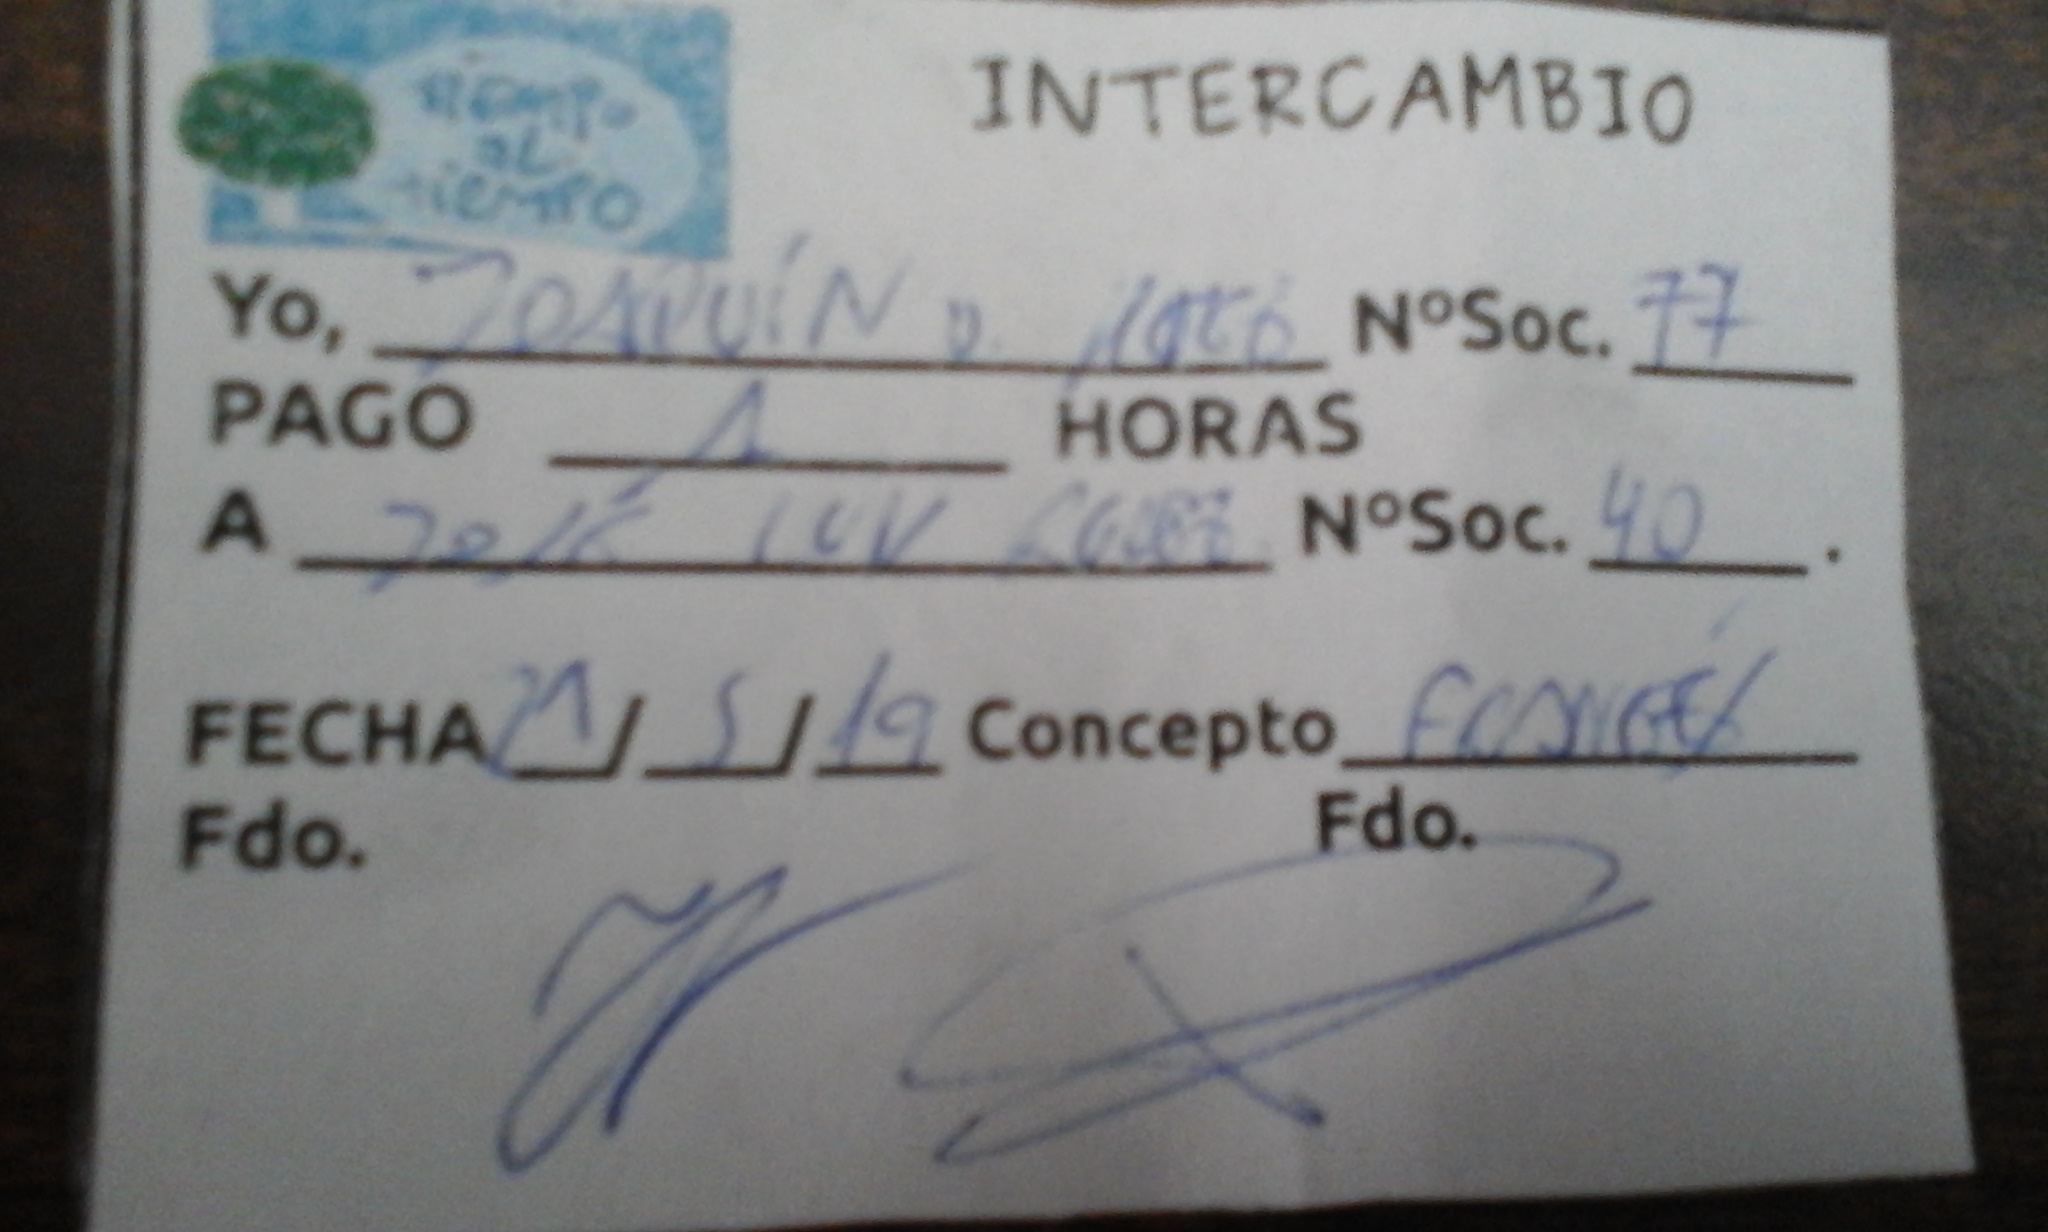 tiempo
al
tiempo
INTERCAMBIO
Yo, JOAQUÍN NºSoc. 77
PAGO 1 HORAS
A JOSÉ NºSoc. 40.
FECHA 21/5/19 Concepto FRANCÉS
Fdo. Fdo.